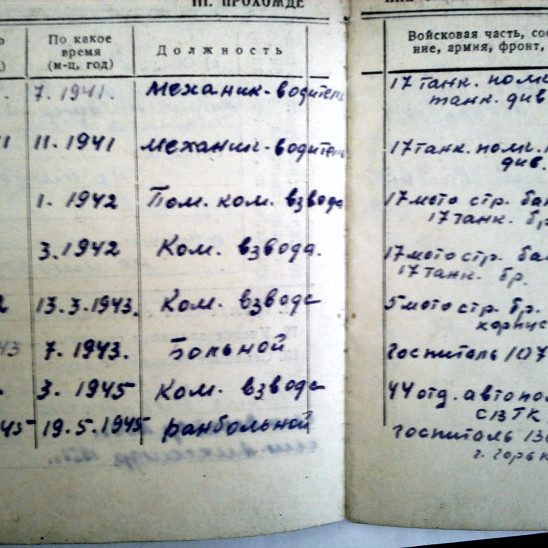 III. ПРОХОЖДЕ
По какое
время
(м-ц, год)
Должность
Войсковая часть, сое
ние, армия, фронт,
7. 1941.
Механик-водитель
17 танк. полк.
танк. див
11. 1941
Механик-водитель
17 танк. полк.
див.
1. 1942
Пом. ком. взвода
17 мото стр. бат
17 танк. бр.
3. 1942
Ком. взвода.
17 мото стр. бат
17 танк. бр.
13. 3. 1943.
Ком. взвода
5 мото стр. бр.
корпус
7. 1943.
Больной
Госпиталь 107
3. 1945
Ком. взвода
44 отд. автопол
19. 5. 1945.
ранбольной
Госпиталь 13
г. Горьк